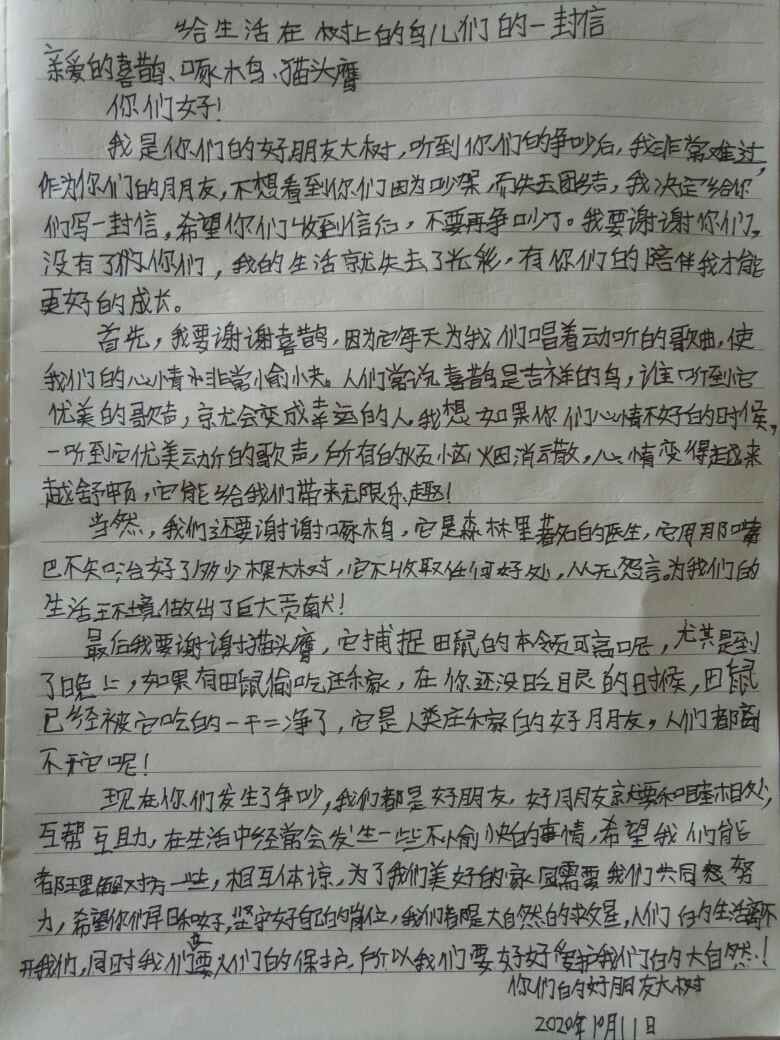 给生活在树上的鸟儿们的一封信
亲爱的喜鹊、啄木鸟、猫头鹰
你们好！
我是你们的好朋友大树，听到你们的争吵后，我非常难过，
作为你们的朋友，不想看到你们因为吵架，而失去团结，我决定给你
们写一封信，希望你们收到信后，不要再争吵了。我要谢谢你们，
没有了你们，我的生活就失去了光彩，有你们的陪伴我才能
更好的成长。
首先，我要谢谢喜鹊，因为它每天为我们唱着动听的歌曲，使
我们的心情非常愉快。人们常说喜鹊是吉祥的鸟，谁听到它
优美的歌声，就会变成幸运的人。我想如果你们心情不好的时候，
一听到它优美动听的歌声，所有的烦恼烟消云散，心情变得越来
越舒畅，它能给我们带来无限乐趣！
当然，我们还要谢谢啄木鸟，它是森林里著名的医生，它用那嘴
巴不知治好了多少棵大树，它不收取任何好处，从无怨言。为我们的
生活环境做出了巨大贡献！
最后我要谢谢猫头鹰，它捕捉田鼠的本领可高呢，尤其是到
了晚上，如果有田鼠偷吃庄稼，在你还没眨眼的时候，田鼠
已经被它吃的一干二净了，它是人类庄稼的好朋友，人们都离
不开它呢！
现在你们发生了争吵，我们都是好朋友，好朋友就要和睦相处，
互帮互助，在生活中经常会发生一些不愉快的事情，希望我们能
都理解对方一些，相互体谅，为了我们美好的家园需要我们共同努
力，希望你们早日和好，坚守好自己的岗位，我们都是大自然的救星，人们的生活离不
开我们，同时我们也要人们的保护，所以我们要好好爱护我们的大自然！
你们的好朋友大树
2020年10月11日